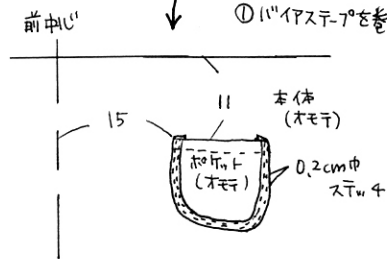 前中心
①バイアステープを巻
11
本体
(オモテ)
15
ポケット
(オモテ)
0.2cm巾
ステッチ